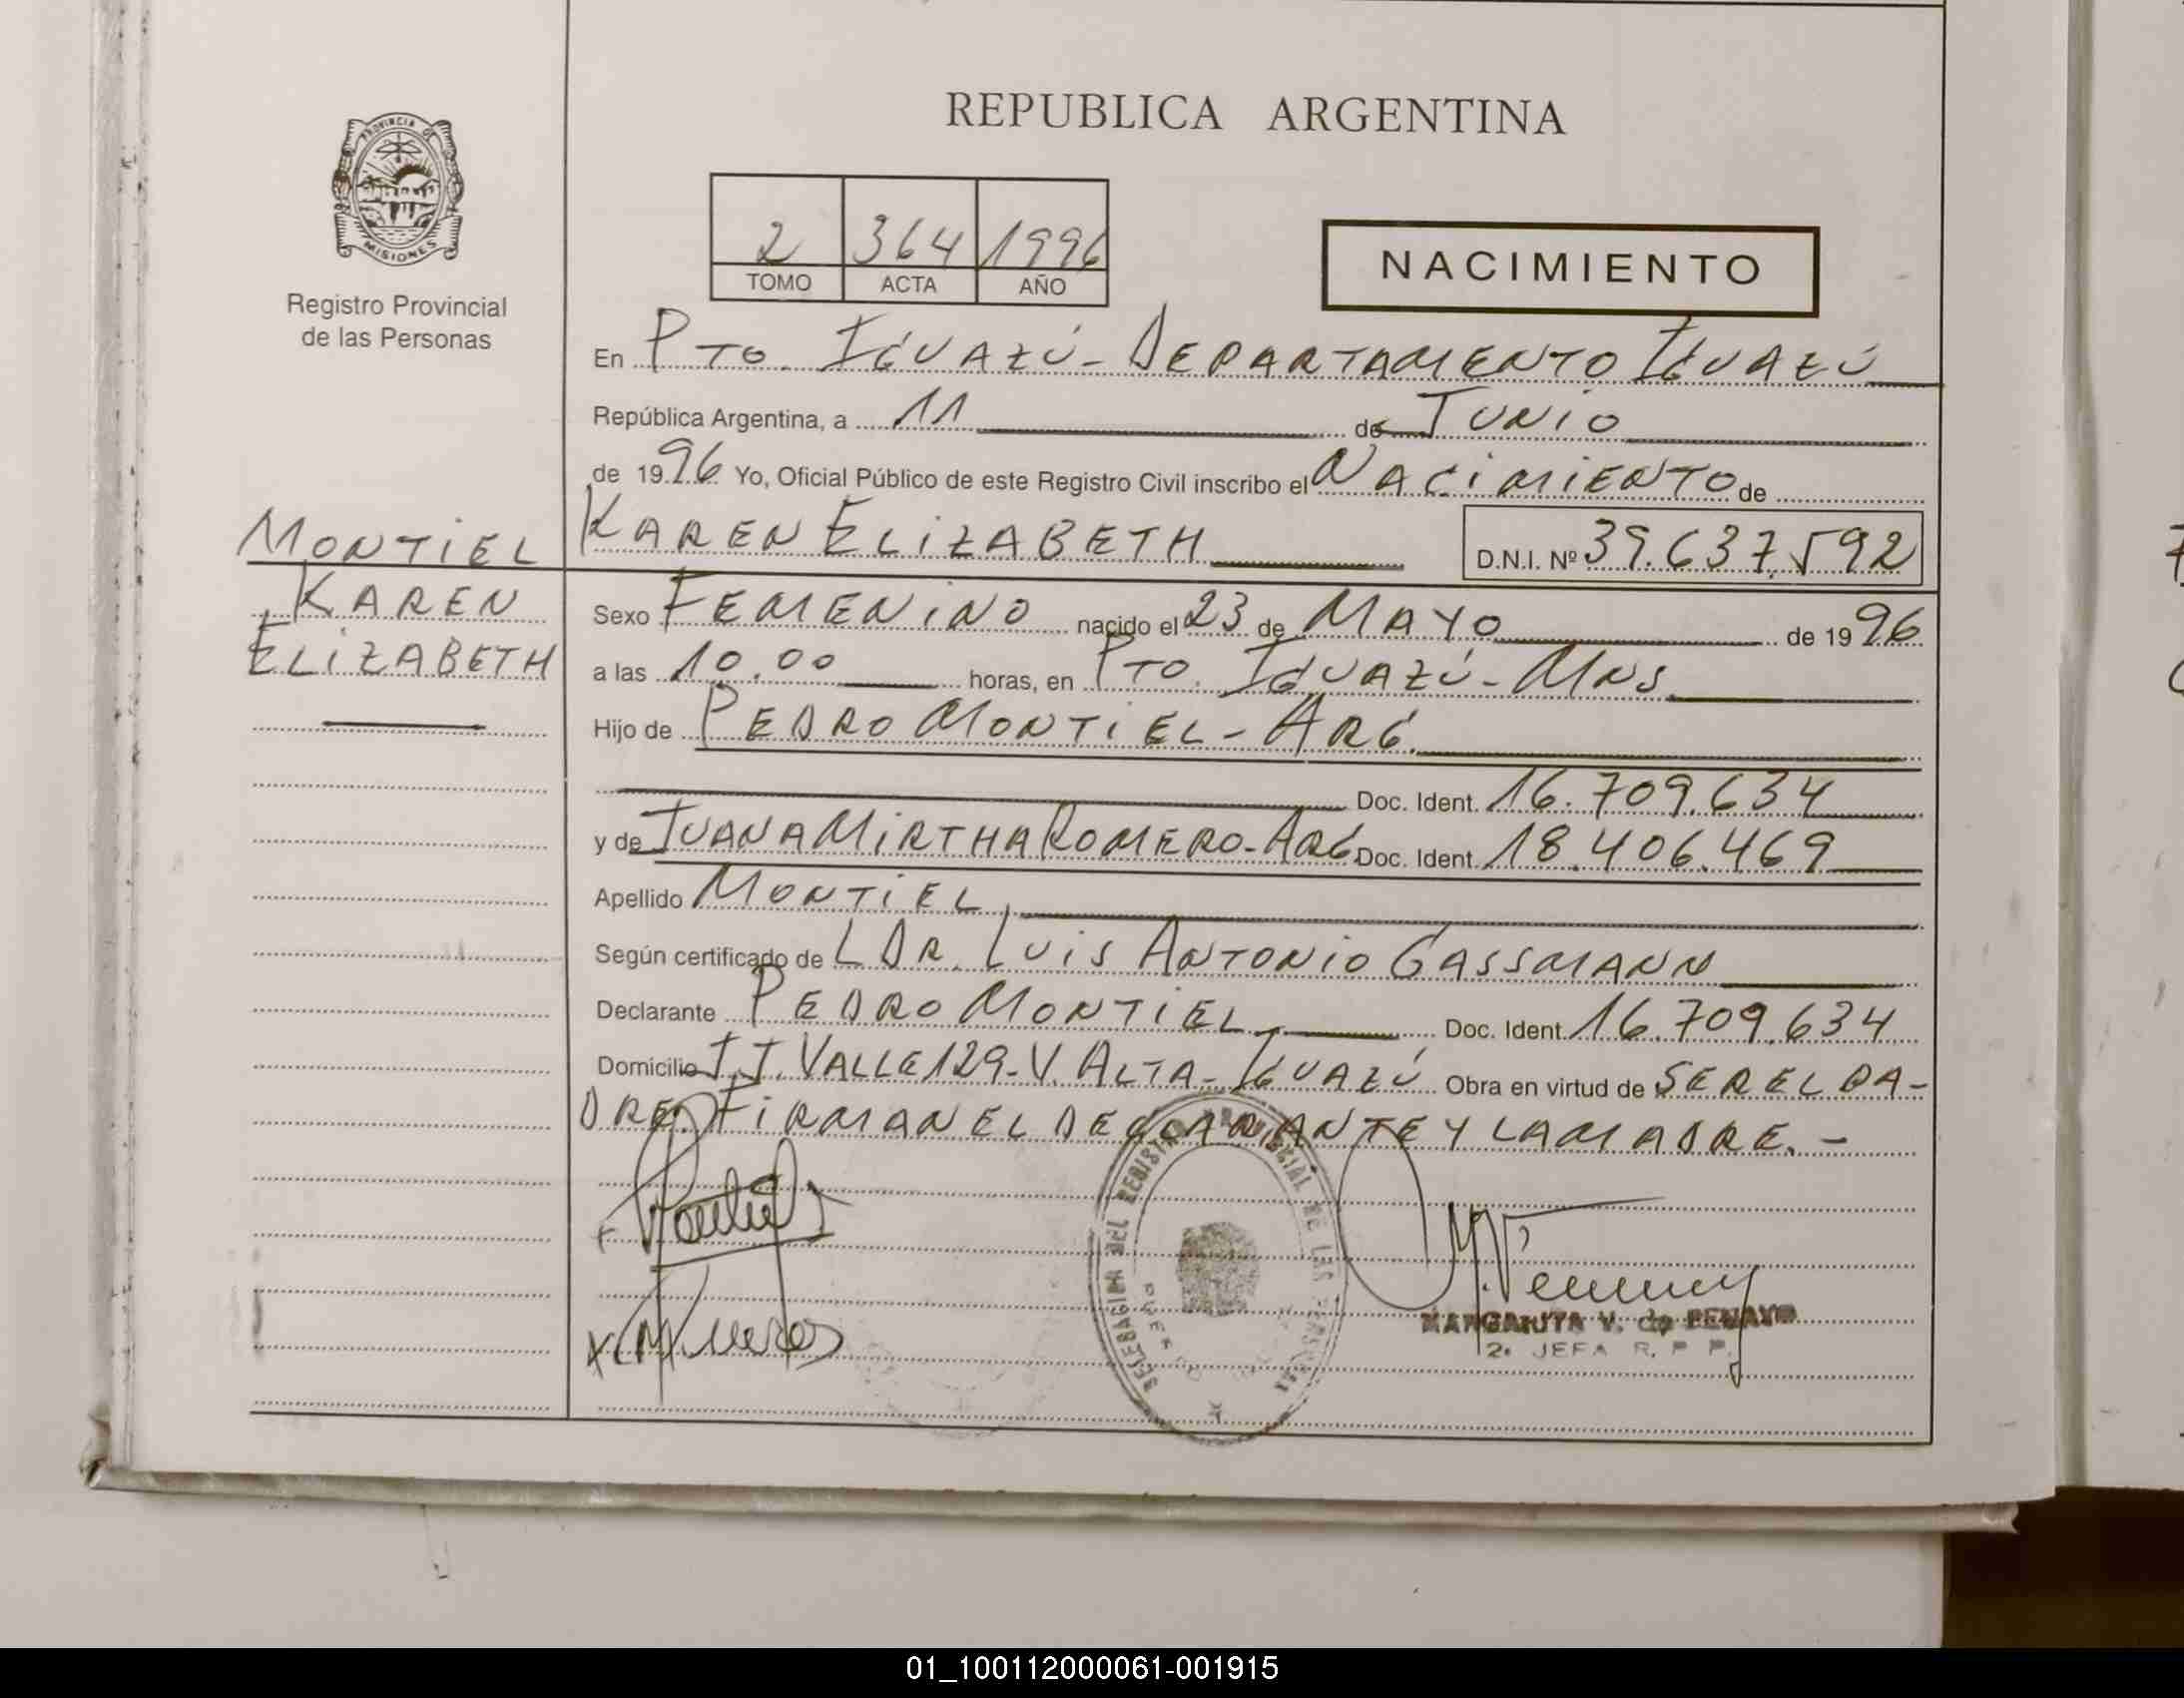 REPUBLICA ARGENTINA
PROVINCIA DE
MISIONES
Registro Provincial
de las Personas
2 364 1996
TOMO ACTA AÑO
NACIMIENTO
En PTO. IGUAZÚ - DEPARTAMENTO IGUAZÚ
República Argentina, a 11 de JUNIO
de 1996 Yo, Oficial Público de este Registro Civil inscribo el NACIMIENTO de
KAREN ELIZABETH D.N.I. Nº 39.637.592
MONTIEL
KAREN
ELIZABETH
Sexo FEMENINO nacido el 23 de MAYO de 1996
a las 10.00 horas, en PTO. IGUAZÚ - MNS.
Hijo de PEDRO MONTIEL - ARG.
Doc. Ident. 16.709.634
y de JUANA MIRTHA ROMERO - ARG. Doc. Ident. 18.406.469
Apellido MONTIEL
Según certificado de L DR. LUIS ANTONIO GASSMANN
Declarante PEDRO MONTIEL Doc. Ident. 16.709.634
Domicilio J.J. VALLE 129 - V. ALTA - IGUAZÚ Obra en virtud de SER EL PA-
DRE. FIRMAN EL DECLARANTE Y LA MADRE. -
DELEGACION del REGISTRO PROVINCIAL DE LAS PERSONAS
MARGARITA V. de BENAYO
2ª JEFA R. P. P.
01_100112000061-001915